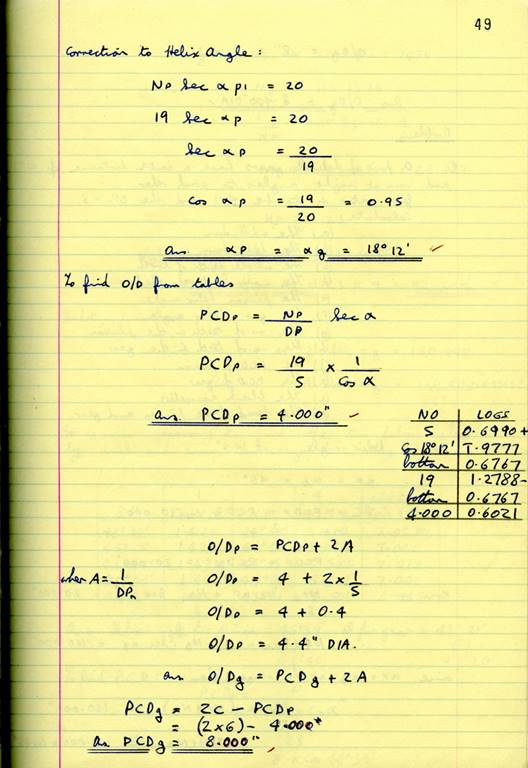 49
Correction to Helix Angle :
Np Sec α p1 = 20
19 Sec α p = 20
Sec α p = 20/19
Cos α p = 19/20 = 0.95
Ans. αp = αg = 18° 12' ✓
To find O/D from tables
PCDp = Np/DP Sec α
PCDp = 19/5 × 1/Cos α
Ans. PCDp = 4.000" ✓
NO LOGS
5 0.6990 +
Cos 18° 12' 1̄.9777
bottom 0.6767
19 1.2788 -
bottom 0.6767
4.000 0.6021
O/Dp = PCDp + 2A
when A = 1/DPn O/Dp = 4 + 2 × 1/5
O/Dp = 4 + 0.4
O/Dp = 4.4" DIA.
Ans O/Dg = PCDg + 2A
PCDg = 2C - PCDp
= (2×6) - 4.000"
Ans PCDg = 8.000" ✓